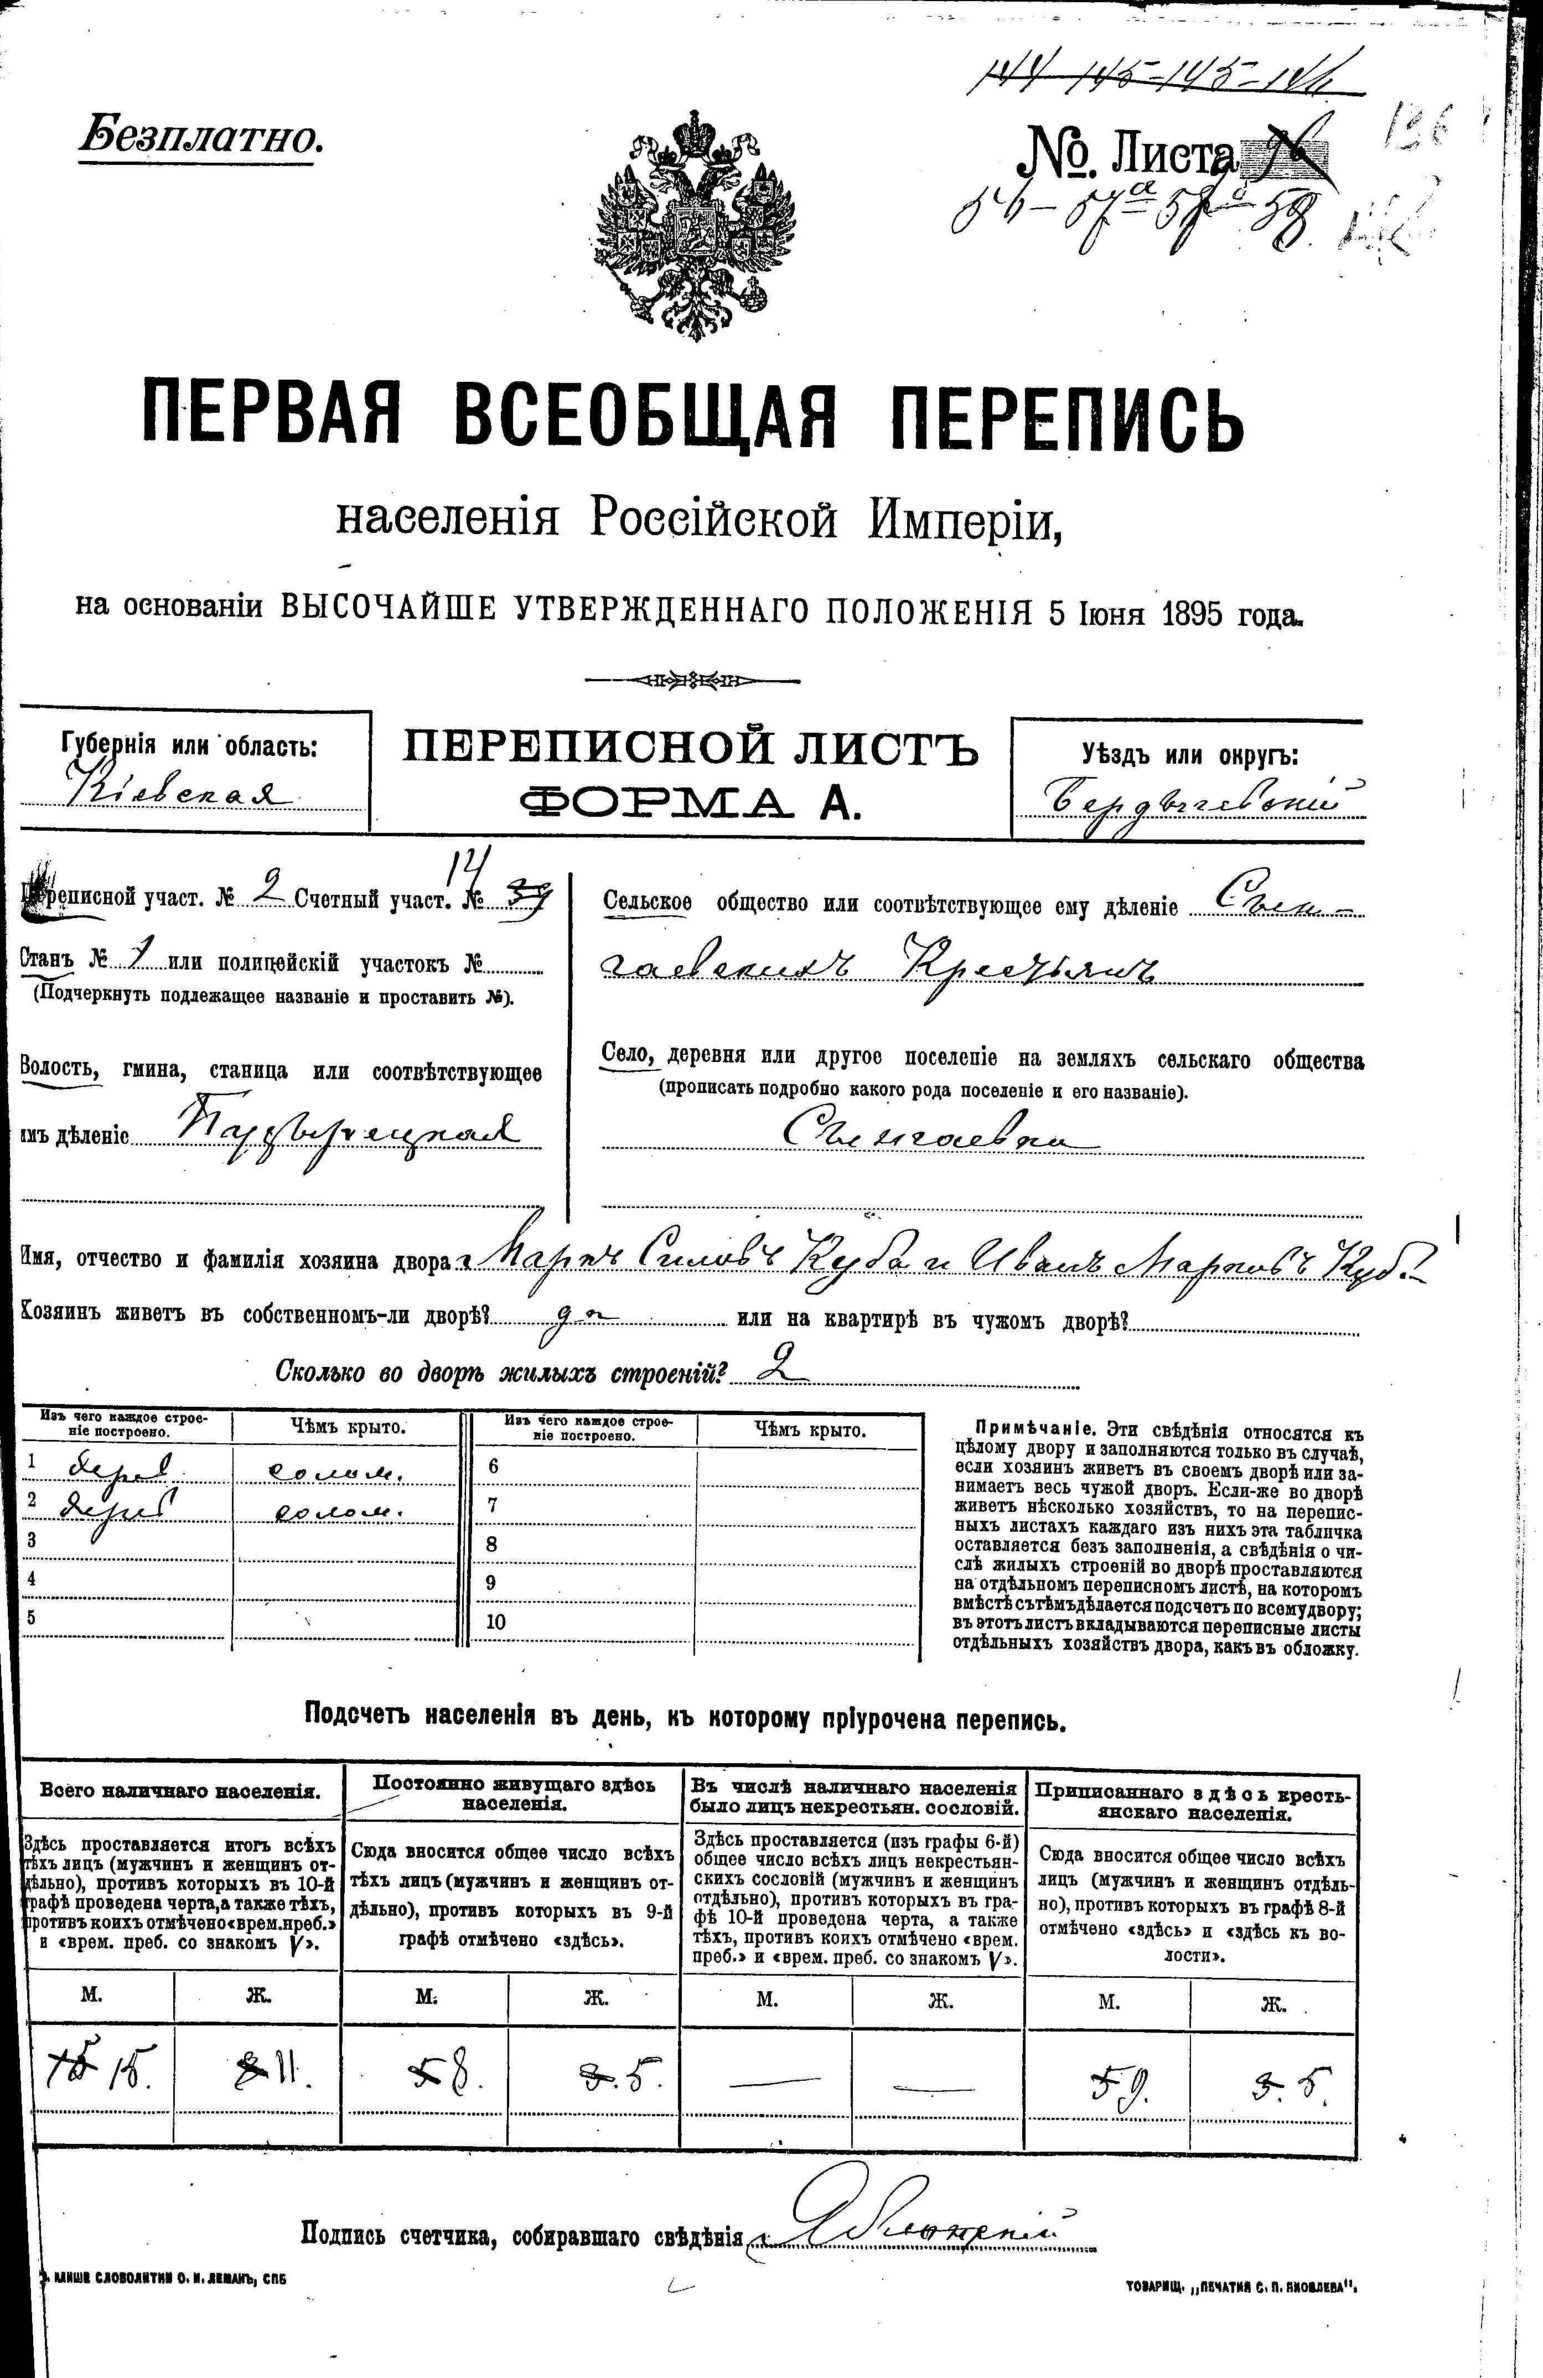 144-145-145-146
Безплатно.
№. Листа 96
56-57а 57б 58
ПЕРВАЯ ВСЕОБЩАЯ ПЕРЕПИСЬ
населенія Россійской Имперіи,
на основаніи ВЫСОЧАЙШЕ УТВЕРЖДЕННАГО ПОЛОЖЕНІЯ 5 Іюня 1895 года.
Губернія или область:
Кіевская
ПЕРЕПИСНОЙ ЛИСТЪ
ФОРМА А.
Уѣздъ или округъ:
Бердычевскій
Переписной участ. № 2 Счетный участ. № 39 14
Станъ № 1 или полицейскій участокъ №
(Подчеркнуть подлежащее названіе и проставить №).
Волость, гмина, станица или соотвѣтствующее
имъ дѣленіе
Сельское общество или соотвѣтствующее ему дѣленіе Сын-
гаевскихъ Крестьянъ
Село, деревня или другое поселеніе на земляхъ сельскаго общества
(прописать подробно какого рода поселеніе и его названіе).
Сынгаевка
Имя, отчество и фамилія хозяина двора: Маркъ Силовъ Куба и Иванъ Марковъ Куба
Хозяинъ живетъ въ собственномъ-ли дворѣ? да или на квартирѣ въ чужомъ дворѣ?
Сколько во дворѣ жилыхъ строеній? 2
Изъ чего каждое строе-
ніе построено.
Чѣмъ крыто.
Изъ чего каждое строе-
ніе построено.
Чѣмъ крыто.
1 дерев солом. 6
2 дерев солом. 7
3 8
4 9
5 10
Примѣчаніе. Эти свѣдѣнія относятся къ
цѣлому двору и заполняются только въ случаѣ,
если хозяинъ живетъ въ своемъ дворѣ или за-
нимаетъ весь чужой дворъ. Если-же во дворѣ
живетъ нѣсколько хозяйствъ, то на перепис-
ныхъ листахъ каждаго изъ нихъ эта табличка
оставляется безъ заполненія, а свѣдѣнія о чи-
слѣ жилыхъ строеній во дворѣ проставляются
на отдѣльномъ переписномъ листѣ, на которомъ
вмѣстѣ съ тѣмъ дѣлается подсчетъ по всему двору;
въ этотъ листъ вкладываются переписные листы
отдѣльныхъ хозяйствъ двора, какъ въ обложку.
Подсчетъ населенія въ день, къ которому пріурочена перепись.
Всего наличнаго населенія.
Здѣсь проставляется итогъ всѣхъ
тѣхъ лицъ (мужчинъ и женщинъ от-
дѣльно), противъ которыхъ въ 10-й
графѣ проведена черта, а также тѣхъ,
противъ коихъ отмѣчено «врем. преб.»
и «врем. преб. со знакомъ V».
Постоянно живущаго здѣсь
населенія.
Сюда вносится общее число всѣхъ
тѣхъ лицъ (мужчинъ и женщинъ от-
дѣльно), противъ которыхъ въ 9-й
графѣ отмѣчено «здѣсь».
Въ числѣ наличнаго населенія
было лицъ некрестьян. сословій.
Здѣсь проставляется (изъ графы 6-й)
общее число всѣхъ лицъ некрестьян-
скихъ сословій (мужчинъ и женщинъ
отдѣльно), противъ которыхъ въ гра-
фѣ 10-й проведена черта, а также
тѣхъ, противъ коихъ отмѣчено «врем.
преб.» и «врем. преб. со знакомъ V».
Приписаннаго здѣсь кресть-
янскаго населенія.
Сюда вносится общее число всѣхъ
лицъ (мужчинъ и женщинъ отдѣль-
но), противъ которыхъ въ графѣ 8-й
отмѣчено «здѣсь» и «здѣсь къ во-
лости».
М. Ж. М. Ж. М. Ж. М. Ж.
15 15. 8 11. 5 8. 3. 5. — — 5 9. 3. 5.
Подпись счетчика, собиравшаго свѣдѣнія:
КЛИШЕ СЛОВОЛИТНИ О. И. ЛЕМАНЪ, СПБ
ТОВАРИЩ. „ПЕЧАТНЯ С. П. ЯКОВЛЕВА".